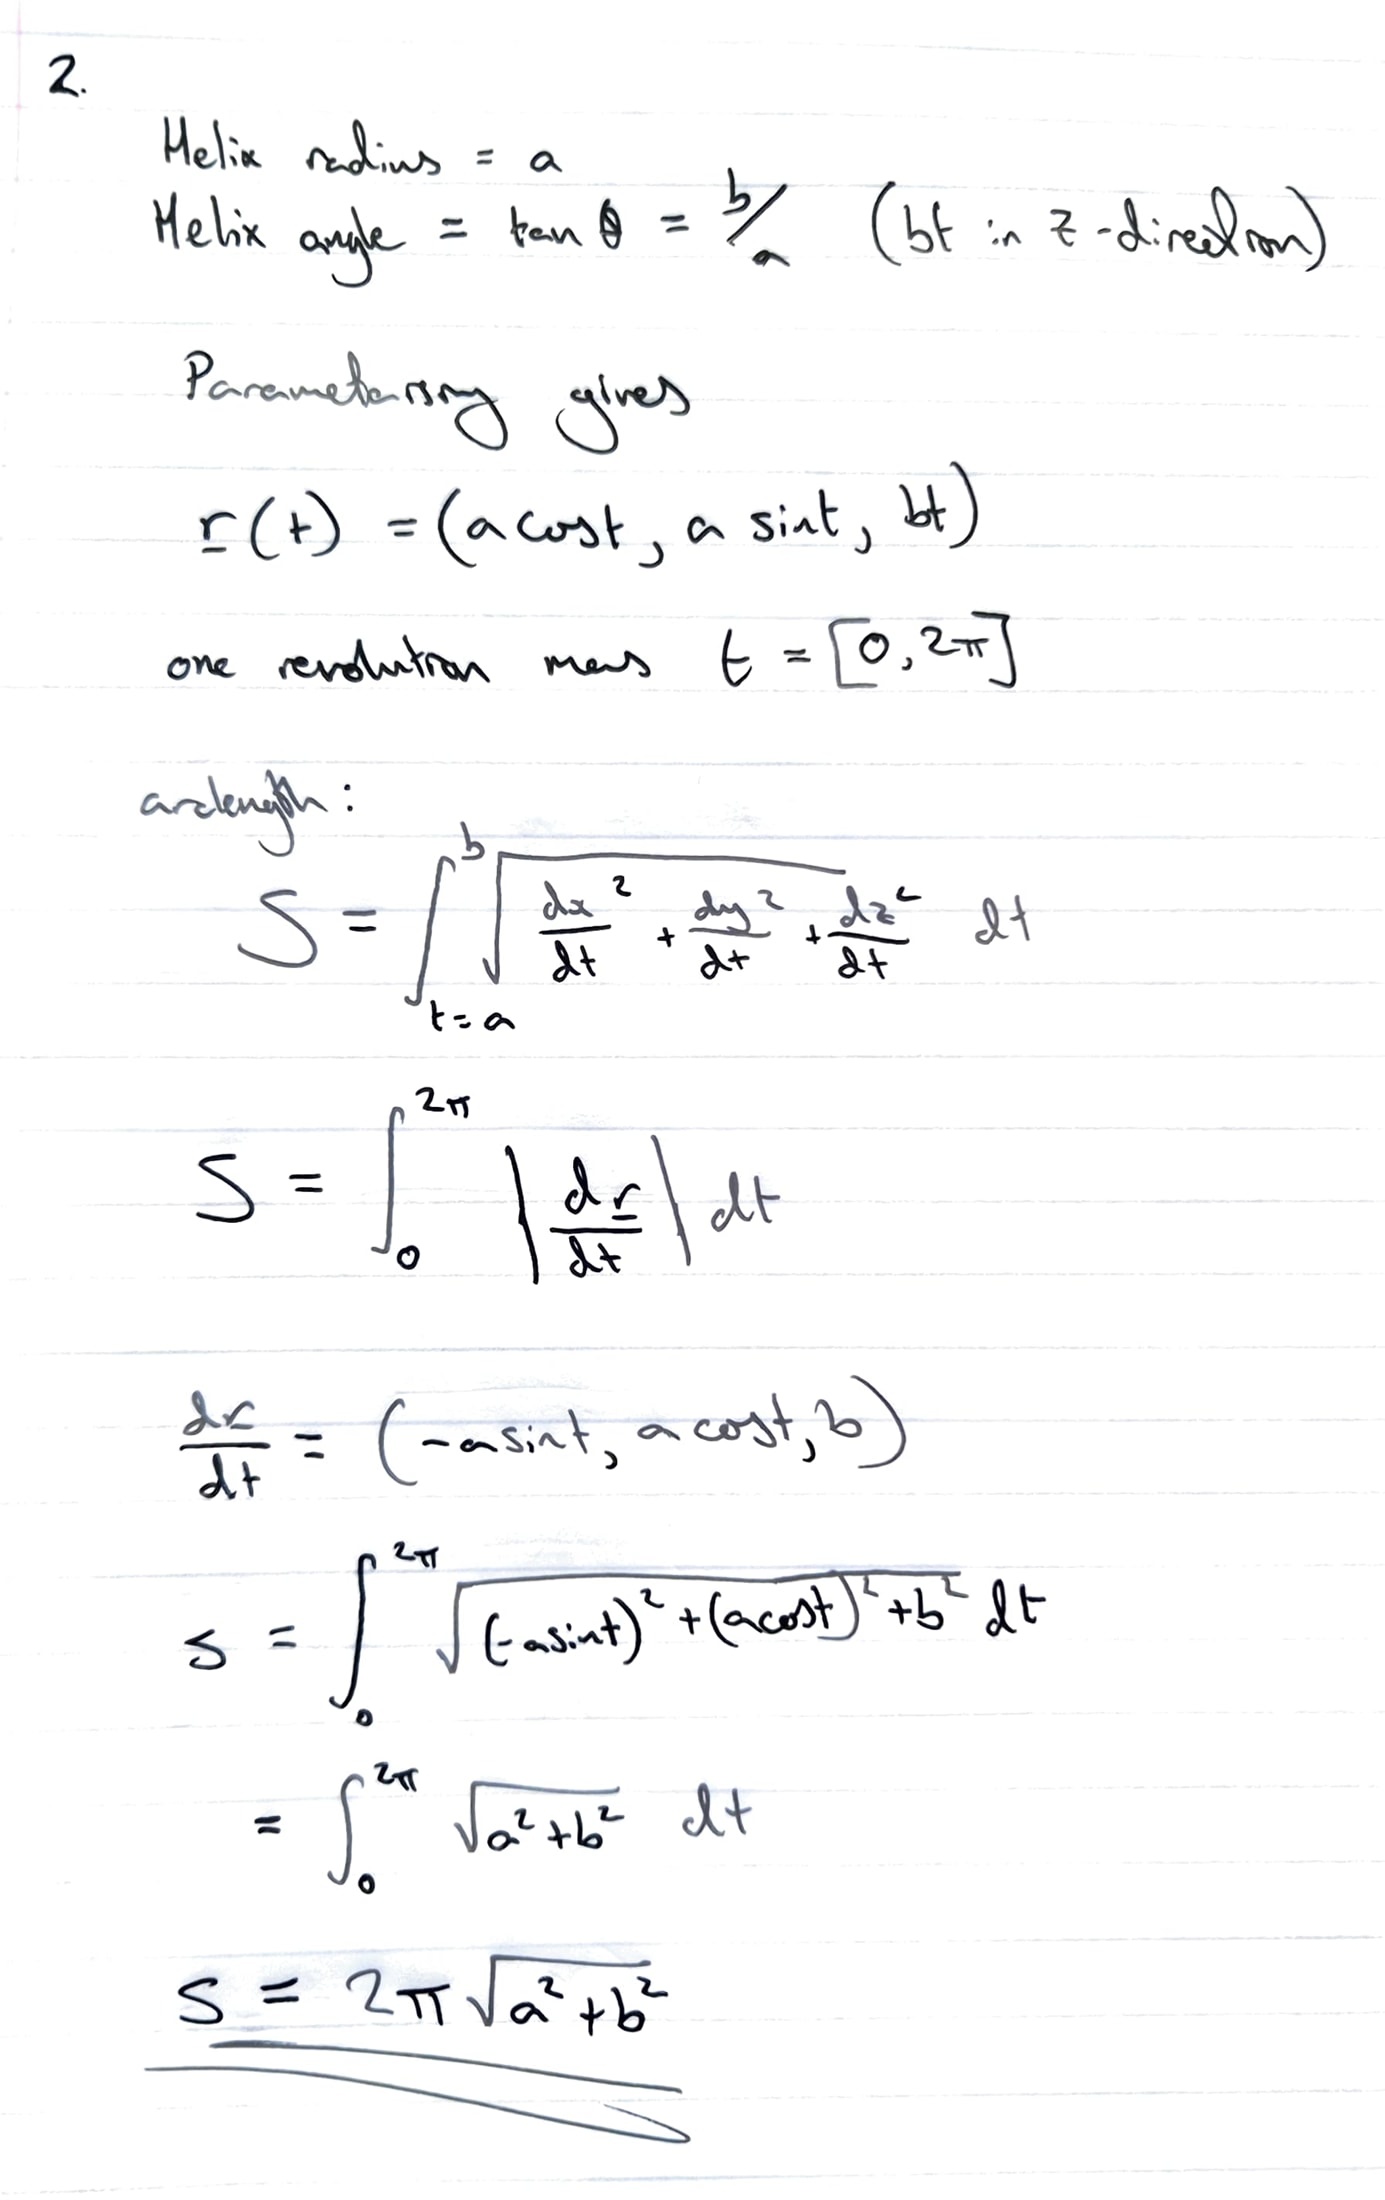 2.
Helix radius = a
Helix angle = tan θ = b/a (bt in z-direction)
Parameterising gives
r(t) = (a cost, a sint, bt)
one revolution means t = [0, 2π]
arclength:
S = ∫_{t=a}^{b} √(dx/dt² + dy/dt² + dz/dt²) dt
S = ∫_0^{2π} |dr/dt| dt
dr/dt = (-a sint, a cost, b)
s = ∫_0^{2π} √((-a sint)² + (a cost)² + b²) dt
= ∫_0^{2π} √(a²+b²) dt
S = 2π√(a²+b²)